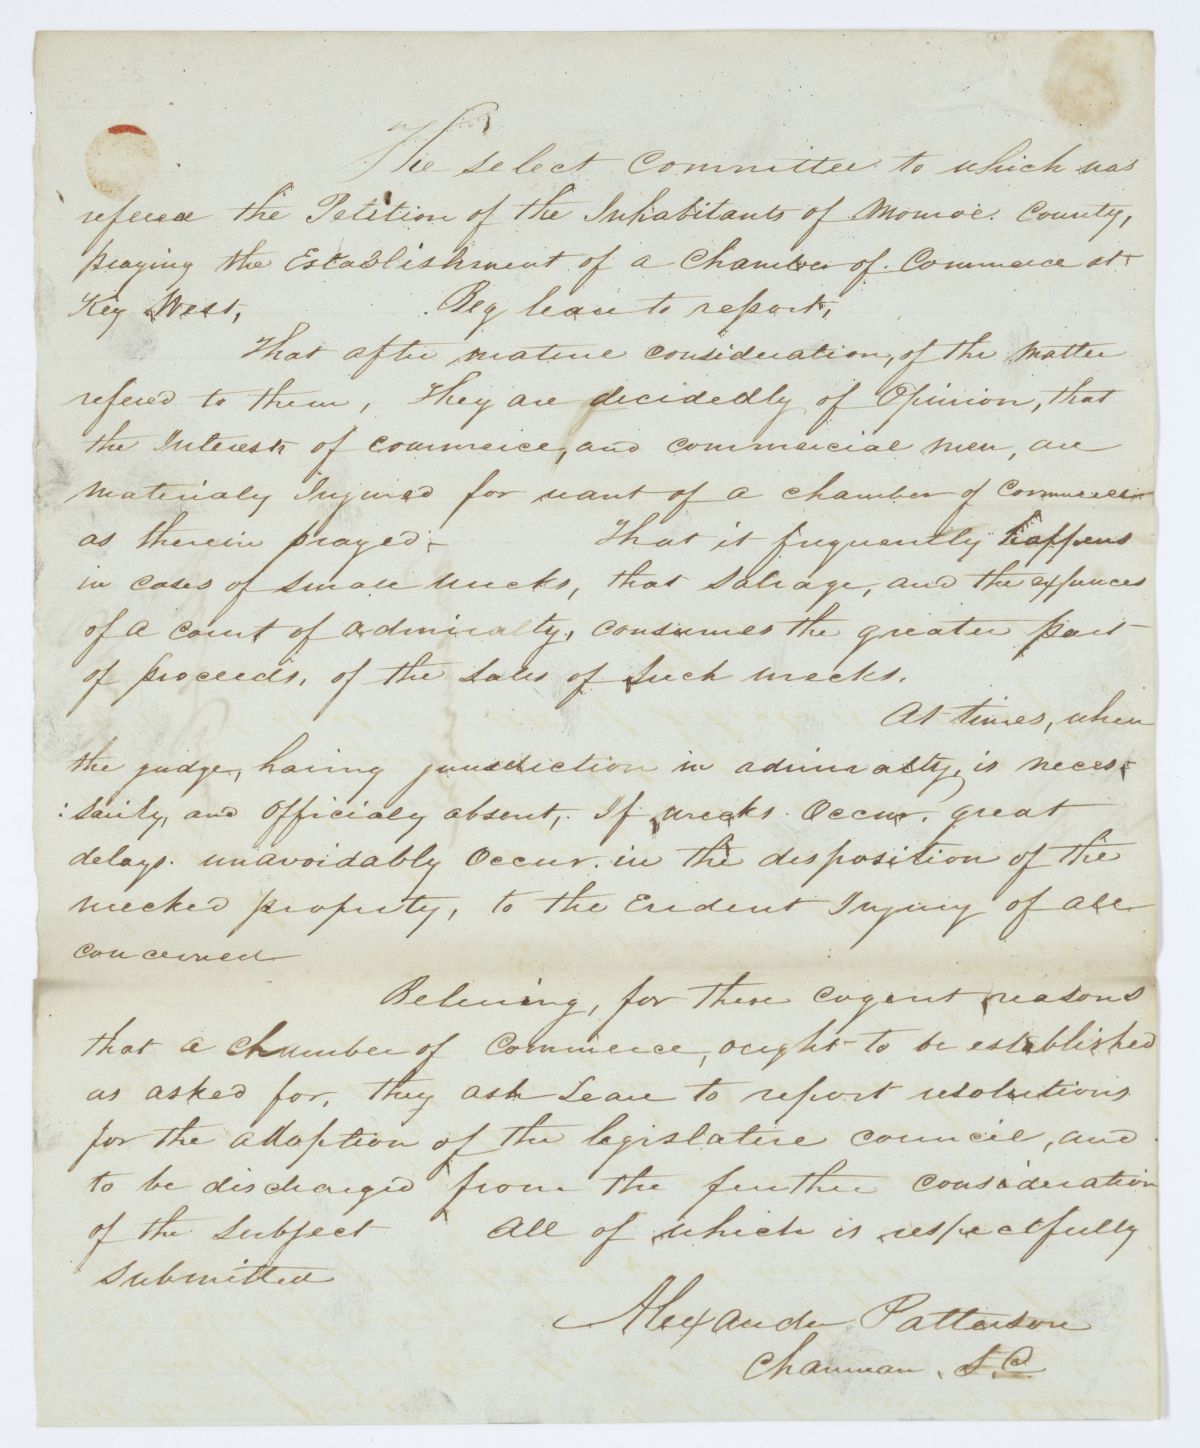 The select Committee to which was
refered the Petition of the Inhabitants of Monroe County,
praying the Establishment of a Chamber of Commerce at
Key West, Beg leave to report,
That after mature consideration, of the matter
refered to them, They are decidedly of Opinion, that
the Interests of commerce, and commercial men, are
materialy Injured for want of a chamber of Commerce
as therein prayed- That it frequently happens
in cases of small wrecks, that Salvage, and the expences
of a court of admiralty, consumes the greater part
of proceeds, of the sales of such wrecks.
At times, when
the judge, having jurisdiction in admiralty, is neces-
:sarily, and Officialy absent, If wrecks Occur, great
delays unavoidably Occur in the disposition of the
wrecked property, to the Evident Injury of all
concerned
Believing, for these cogent reasons
that a chamber of Commerce, ought to be established
as asked for, they ask Leave to report resolutions
for the addoption of the legislative council, and
to be discharged from the further consideration
of the Subject All of which is respectfully
Submitted
Alexander Patterson
Chairman, S.C.